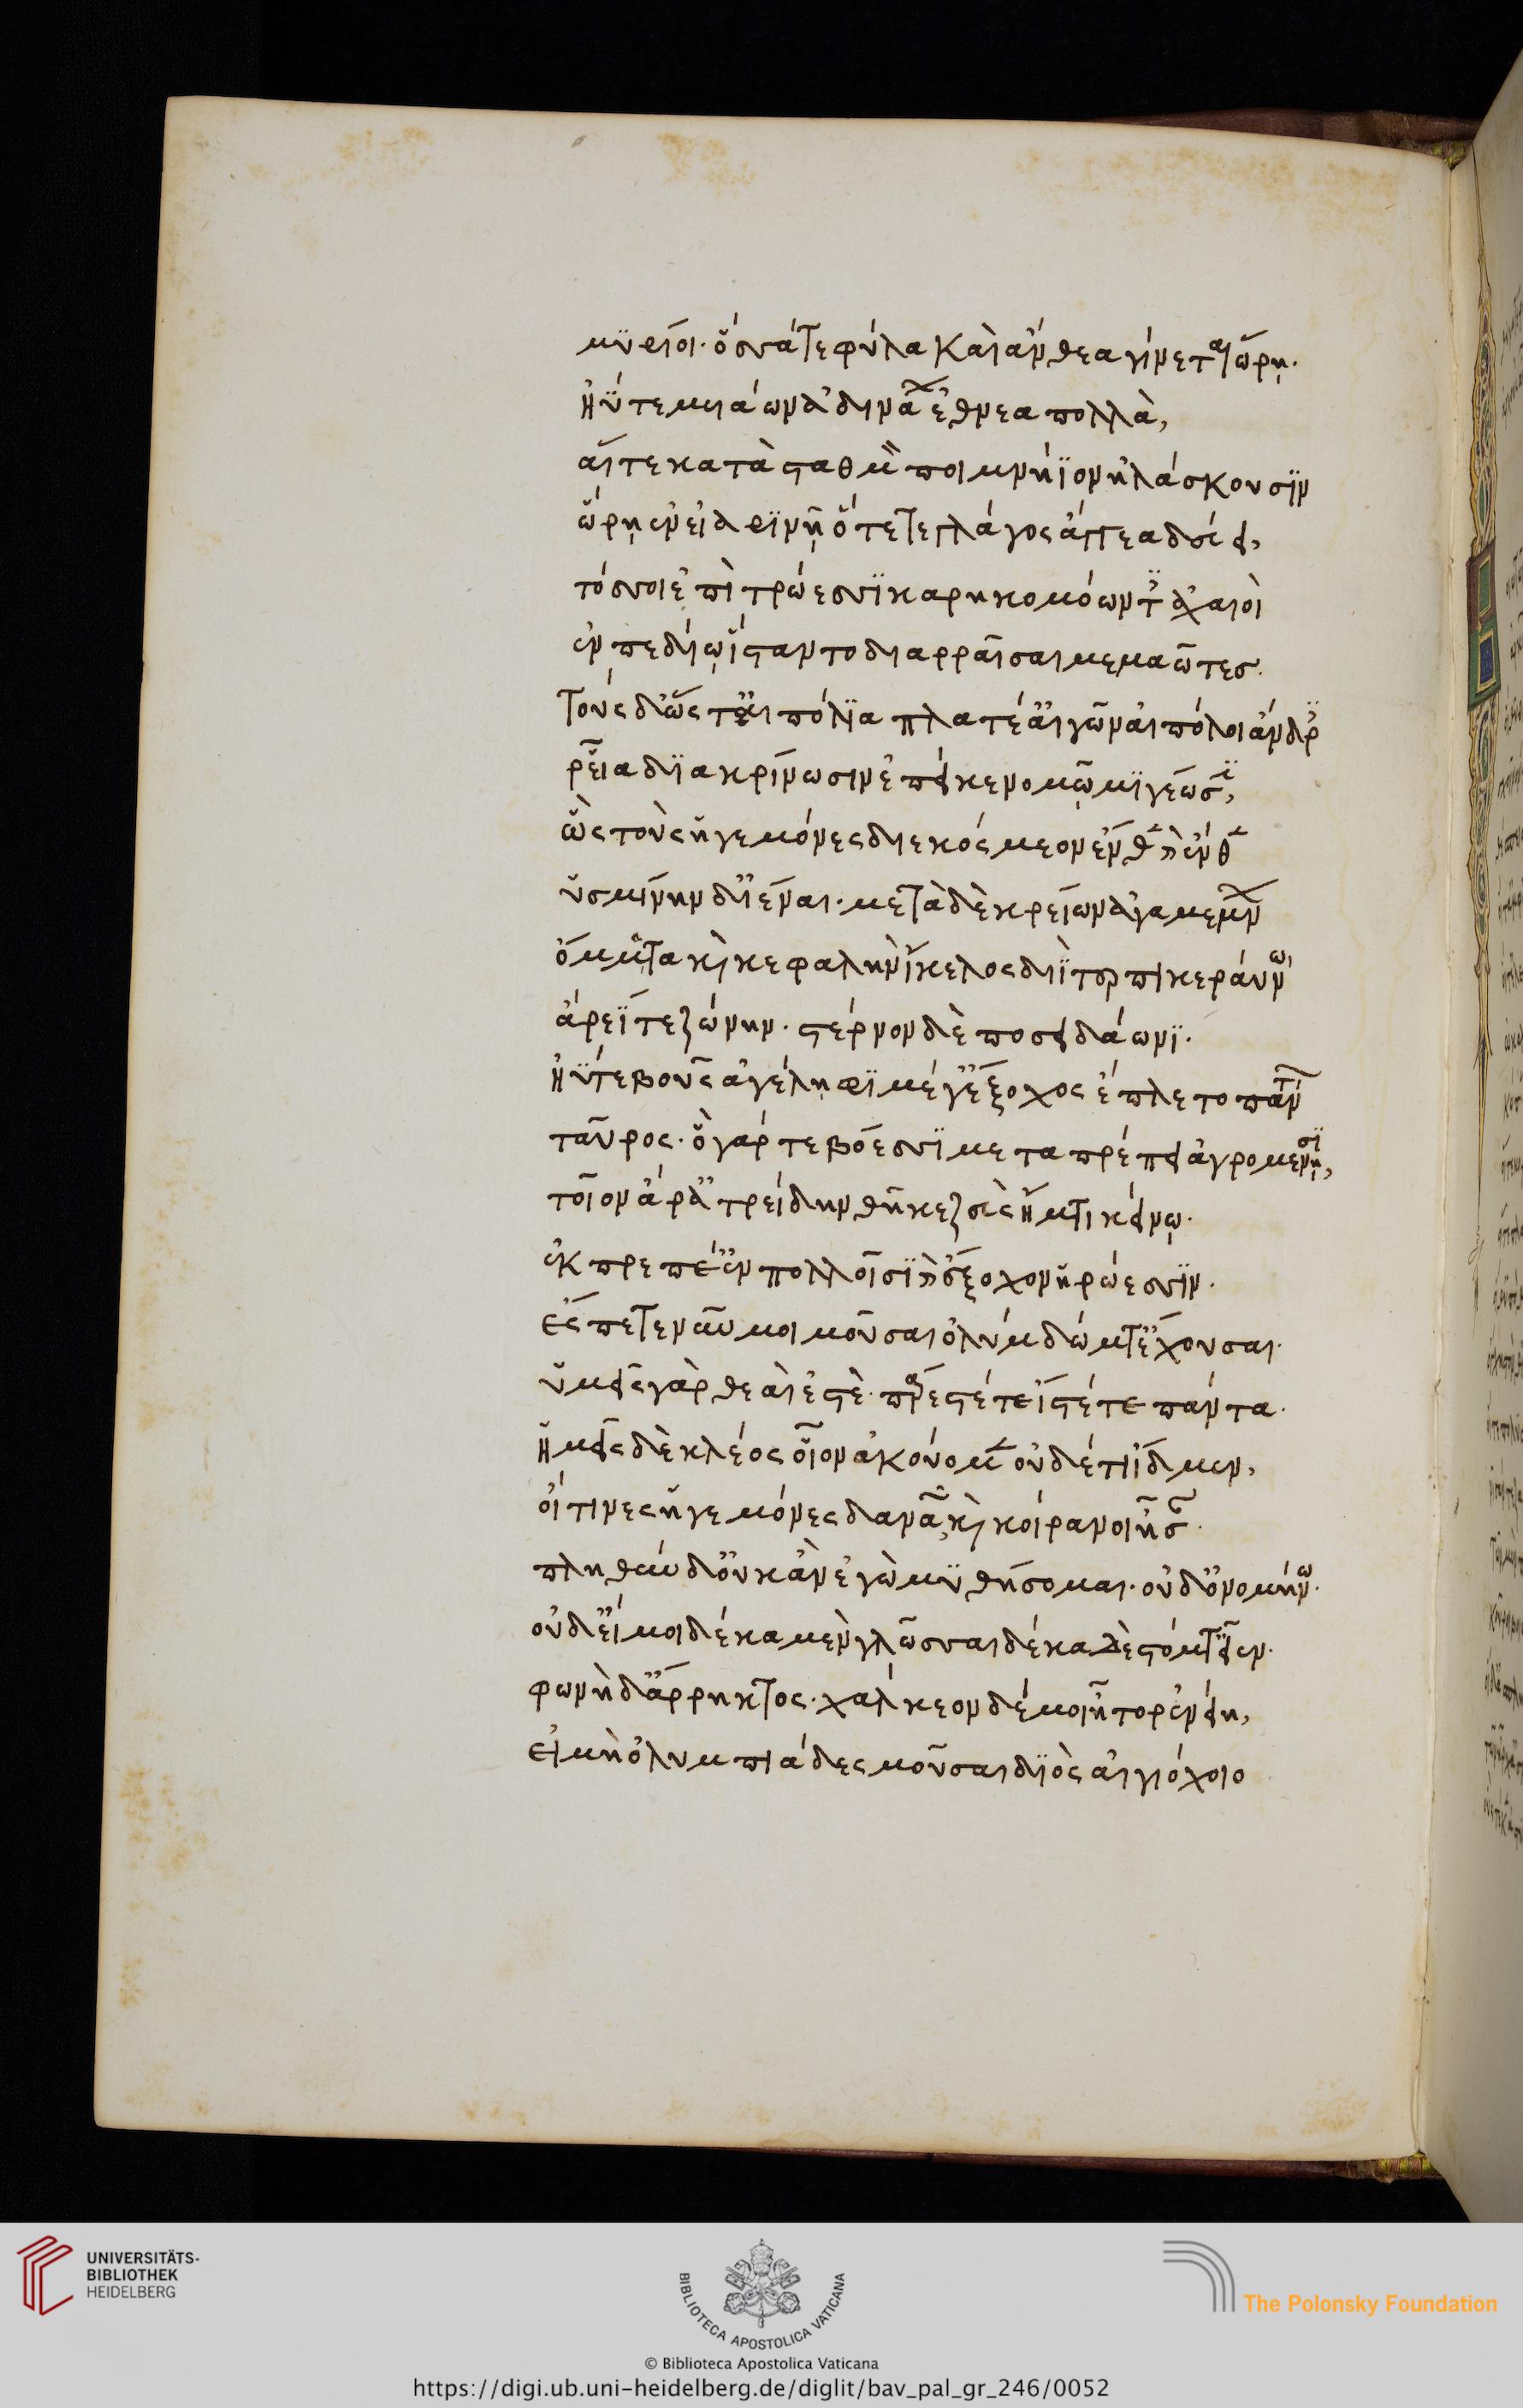 μυρίοι· ὅσσά τε φύλλα καὶ ἄνθεα γίνεται ὥρῃ·
ἠΰτε μυιάων ἀδινάων ἔθνεα πολλὰ,
αἵτε κατὰ σταθμὸν ποιμνήϊον ἠλάσκουσιν
ὥρῃ ἐν εἰαρινῇ ὅτε τε γλάγος ἄγγεα δεύει,
τόσσοι ἐπὶ τρώεσσι καρηκομόωντες ἀχαιοὶ
ἐν πεδίῳ ἵσταντο διαρραῖσαι μεμαῶτες.
τοὺς δ' ὥστ' αἰπόλια πλατέ' αἰγῶν αἰπόλοι ἄνδρες
ῥεῖα διακρίνωσιν ἐπεί κε νομῷ μιγέωσι,
ὣς τοὺς ἡγεμόνες διεκόσμεον ἔνθα καὶ ἔνθα
ὑσμίνην δ' ἰέναι· μετὰ δὲ κρείων ἀγαμέμνων
ὄμματα καὶ κεφαλὴν ἴκελος διῒ τερπικεραύνῳ
ἄρεϊ τε ζώνην· στέρνον δὲ ποσειδάωνι·
ἠΰτε βοῦς ἀγέληφι μέγ' ἔξοχος ἔπλετο πάντων
ταῦρος· ὃ γάρ τε βόεσσι μεταπρέπει ἀγρομένῃσι,
τοῖον ἄρ' ἀτρείδην θῆκε ζεὺς ἤματι κείνῳ·
ἐκπρεπέ' ἐν πολλοῖσι καὶ ἔξοχον ἡρώεσσιν·
ἔσπετε νῦν μοι μοῦσαι ὀλύμπια δώματ' ἔχουσαι·
ὑμεῖς γὰρ θεαί ἐστε· πάρεστέ τε ἴστέ τε πάντα·
ἡμεῖς δὲ κλέος οἶον ἀκούομεν οὐδέ τι ἴδμεν,
οἵτινες ἡγεμόνες δαναῶν καὶ κοίρανοι ἦσαν·
πληθὺν δ' οὐκ ἂν ἐγὼ μυθήσομαι· οὐδ' ὀνομήνω·
οὐδ' εἴ μοι δέκα μὲν γλῶσσαι δέκα δὲ στόματ' εἶεν·
φωνὴ δ' ἄρρηκτος· χάλκεον δέ μοι ἦτορ ἐνείη,
εἰ μὴ ὀλυμπιάδες μοῦσαι διὸς αἰγιόχοιο
UNIVERSITÄTS-
BIBLIOTHEK
HEIDELBERG
BIBLIOTECA APOSTOLICA VATICANA
The Polonsky Foundation
© Biblioteca Apostolica Vaticana
https://digi.ub.uni-heidelberg.de/diglit/bav_pal_gr_246/0052